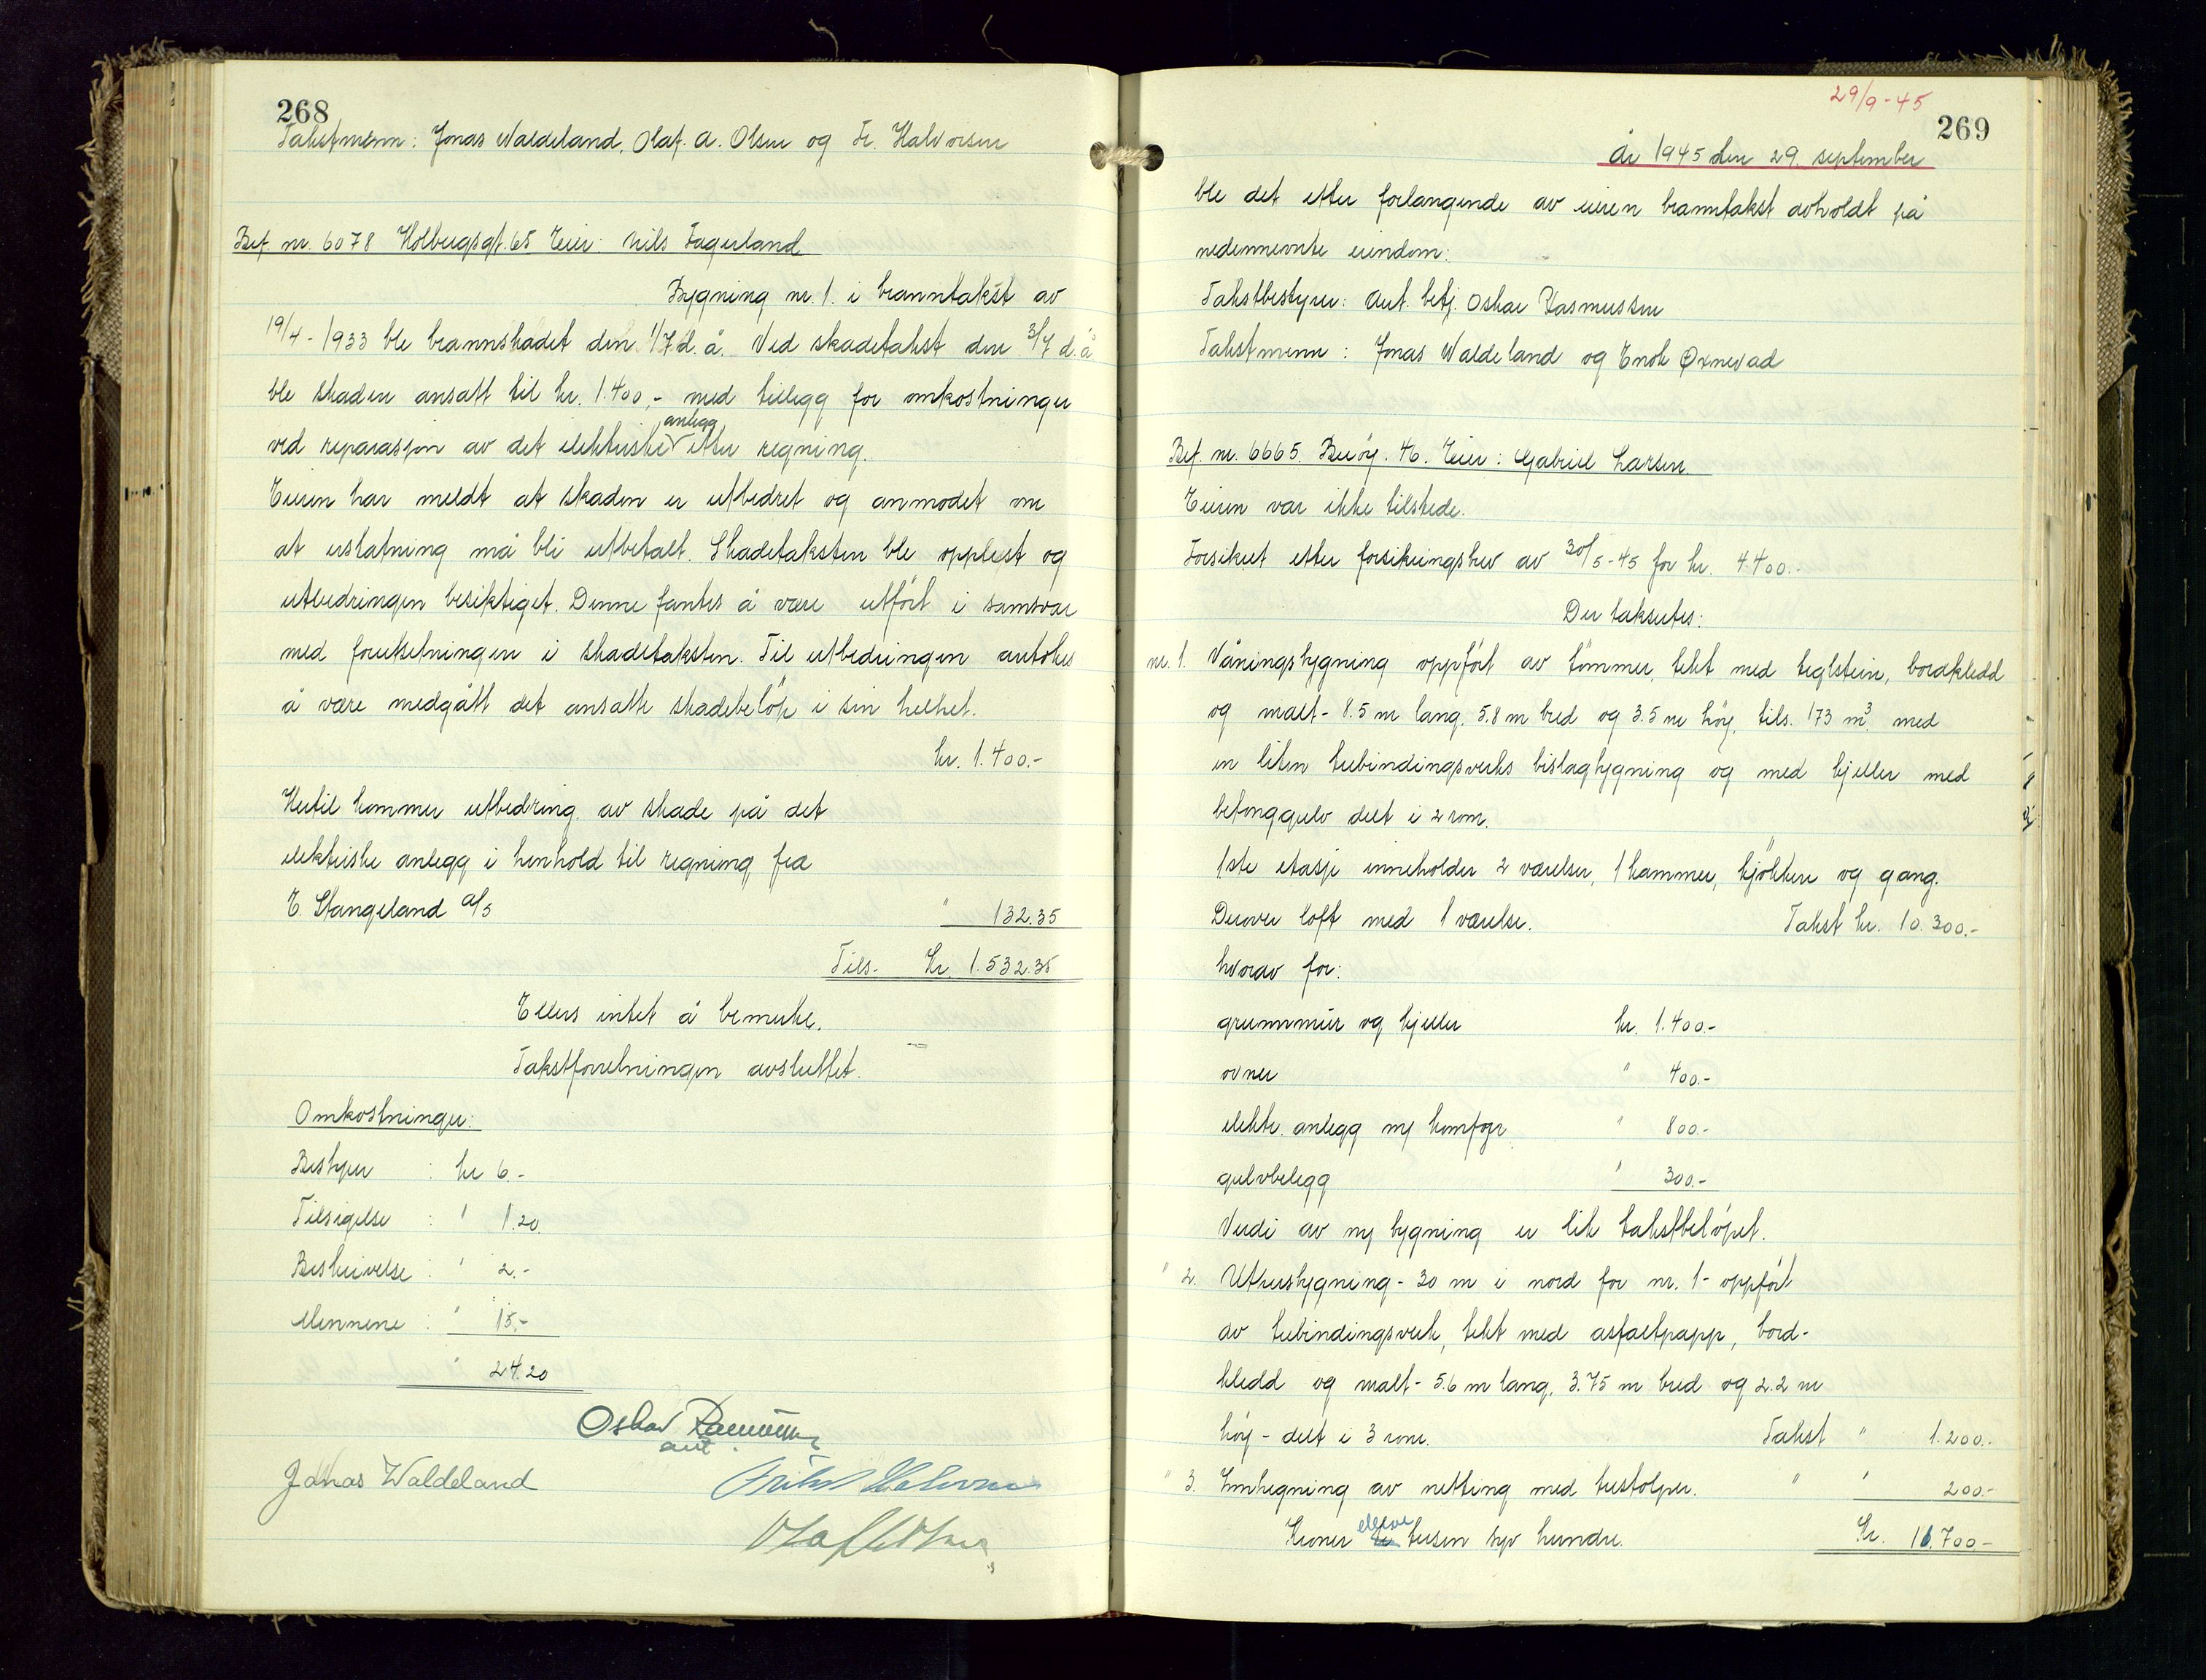 268
Takstmenn: Jonas Waldeland, Olaf. A. Olsen og Fr. Halvorsen
Bef. nr. 6078 Holbergsgt. 65 Eier: Nils Fagerland
Bygning nr. 1. i branntakst av
19/4-1933 ble brannskadet den 1/7 d. å. Ved skadetakst den 3/7 d. å
ble skaden ansatt til kr. 1.400,- med tillegg for omkostninger
ved reparasjon av det elektriske anlegg etter regning.
Eieren har meldt at skaden er utbedret og anmodet om
at erstatning må bli utbetalt. Skadetaksten ble opplest og
utbedringen besiktiget. Denne fantes å være utført i samsvar
med forutsetningen i skadetaksten. Til utbedringen antokes
å være medgått det ansatte skadebeløp i sin helhet.
kr. 1.400.-
Hertil kommer utbedring av skade på det
elektriske anlegg i henhold til regning fra
E. Stangeland A/S " 132.35
Tils. Kr. 1.532.35
Ellers intet å bemerke.
Takstforretningen avsluttet.
Omkostninger:
Bestyrer : kr 6.-
Tilsigelse : " 1.20
Beskrivelse : " 2.-
Mennene : " 15.-
" 24.20
Oskar Rasmussen
aut.
Jonas Waldeland
Fritz Halvorsen
Olaf A Olsen
29/9-45
269
År 1945 den 29. september
ble det etter forlangende av eieren branntakst avholdt på
nedennevnte eiendom:
Takstbestyrer: Aut. betj. Oskar Rasmussen
Takstmenn: Jonas Waldeland og Enok Oxnevad
Bef. nr. 6665. Buøy. 46. Eier: Gabriel Larsen
Eieren var ikke tilstede.
Forsikret etter forsikringsbrev av 30/5-45 for kr. 4.400.-
Der takseres:
nr. 1. Våningsbygning oppført av tømmer, tekt med teglstein, bordkledd
og malt - 8.5 m lang, 5.8 m bred og 3.5 m høy, tils. 173 m³. med
en liten trebindingsverks bislagbygning og med kjeller med
betonggulv delt i 2 rom.
1ste etasje inneholder 2 værelser, 1 kammer, kjøkken og gang.
Derover loft med 1 værelse. Takst kr. 10.300.-
hvorav for:
grunnmur og kjeller kr. 1.400.-
ovner " 400.-
elektr. anlegg m/ komfyr " 800.-
gulvbelegg " 300.-
Verdi av ny bygning er lik takstbeløpet.
" 2. Uthusbygning - 30 m i nord for nr. 1 - oppført
av trebindingsverk, tekt med asfaltpapp, bord-
kledd og malt - 5.6 m lang, 3.75 m bred og 2.2 m
høy - delt i 3 rom. Takst " 1.200.-
" 3. Innhegning av netting med trestolper. " " 200.-
Kroner elleve tusen syv hundre. Kr. 11.700-